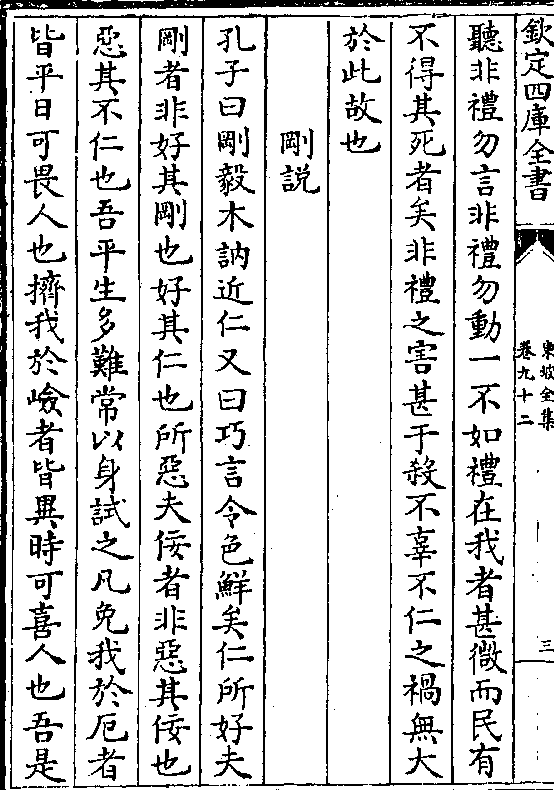 欽定四庫全書
東坡全集
卷九十二
三
聽非禮勿言非禮勿動一不如禮在我者甚微而民有
不得其死者矣非禮之害甚于殺不辜不仁之禍無大
於此故也
剛説
孔子曰剛毅木訥近仁又曰巧言令色鮮矣仁所好夫
剛者非好其剛也好其仁也所惡夫佞者非惡其佞也
惡其不仁也吾平生多難常以身試之凡免我於厄者
皆平日可畏人也擠我於嶮者皆異時可喜人也吾是